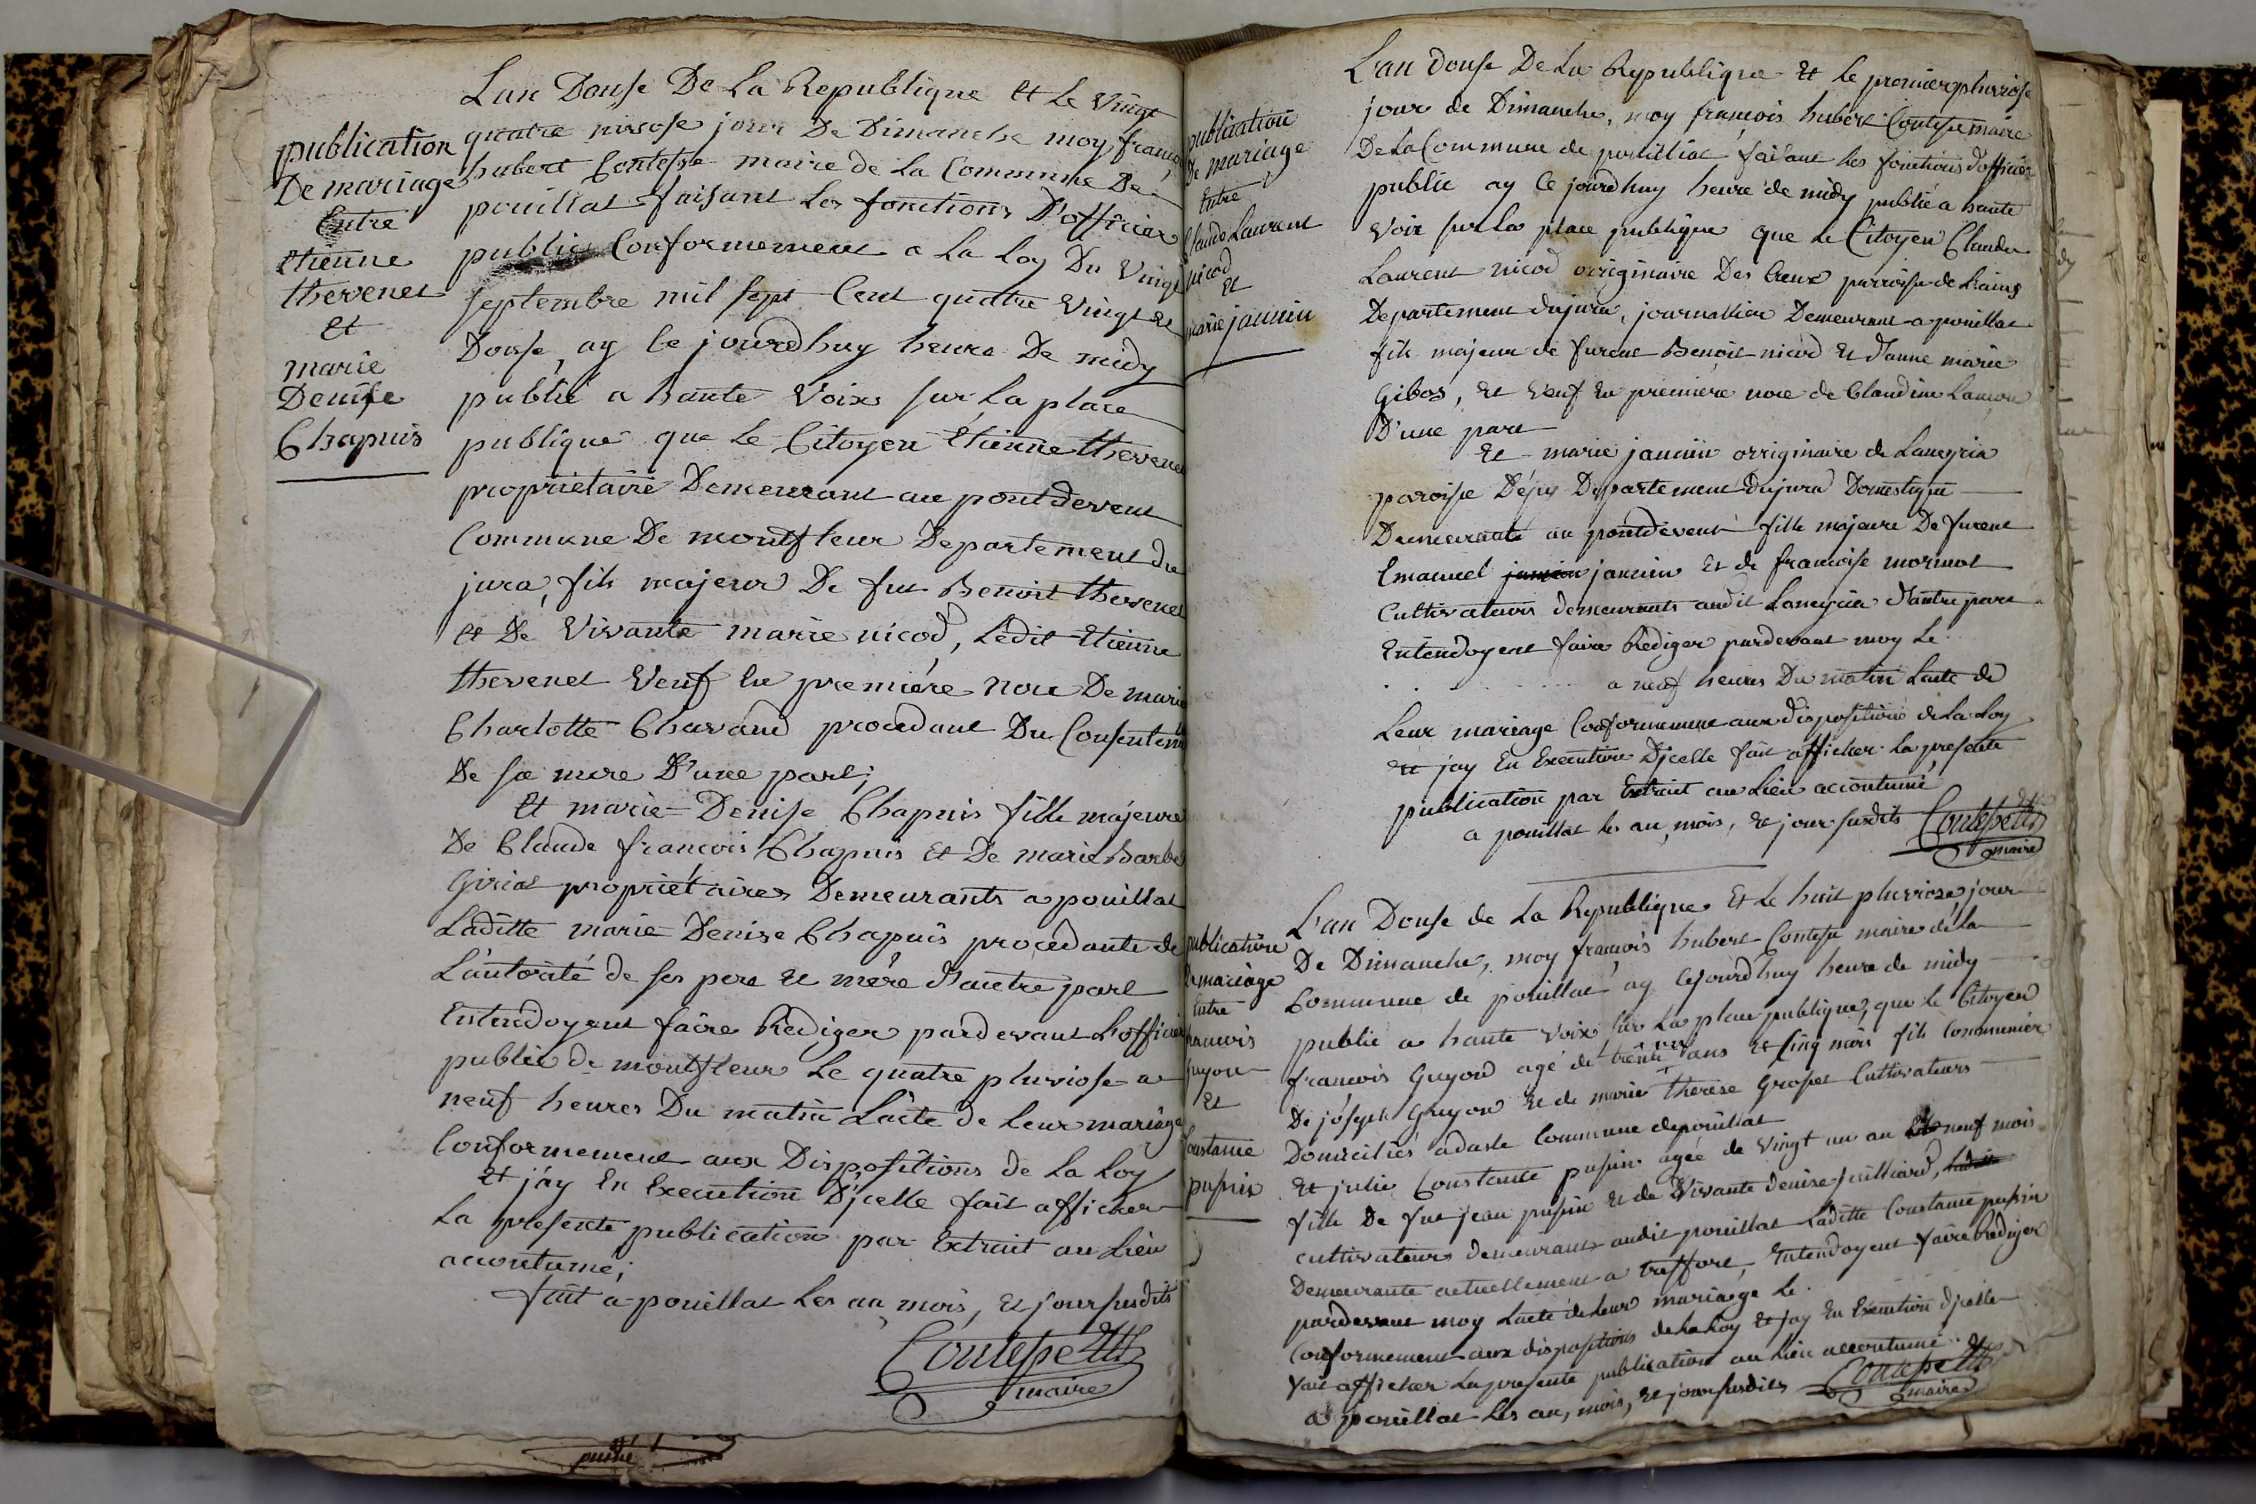 Lan Douse De La Republique et le vingt
quatre nivose jour De Dimanche moy françois
hubert Contesse maire de La Commune De
pouillat faisant les fonctions D'officier
public Conformement a La Loy Du Vingt
septembre mil sept Cent quatre Vingt et
Douse, ay Ce jourdhuy heure De midy
publié a haute Voix sur La place
publique que Le Citoyen Etienne thevenet
proprietaire Demeurant au pontdevent
Commune De montfleur Departement du
jura, fils majeur De fut Benoit thevenet
et De Vivante marie nicod, Ledit Etienne
thevenet Veuf En premiére noce De marie
Charlotte Chavand procedant Du Consentem
De sa mere D'une part;
Et marie Denise Chapuis fille majeure
De Claude francois Chapuis et De marie Barbe
Giriat propriétaires Demeurants a pouillat
Laditte marie Denise Chapuis procedante de
L'autorité de ses pere et mére d'autre part
Entendoyent faire Rédiger pardevant L'officier
public de montfleur Le quatre pluviose a
neuf heures Du matin L'acte de Leur mariage
Conformement aux Dispositions de La Loy
et j'ay En Execution D'jcelle fait afficher
La presente publication par Extrait au Lieu
accoutumé;
fait a pouillat Les an, mois, et jour susdits
Contesse
maire
publication
De mariage
Entre
etienne
thevenet
et
marie
Denise
Chapuis
L'an douse De La Republique et le premier pluviose
jour de Dimanche, moy françois hubert Contesse maire
De La Commune de pouillat faisant les fonctions d'officier
public ay Ce jourdhuy heure de midy publié a haute
Voix sur La place publique que le Citoyen Claude
Laurent nicod originaire Des Creux parroisse de Lains
Departement du jura, journallier Demeurant a pouillat
fils majeur de furent Benoit nicod et d'anne marie
Gibos, et Veuf En premiere noce de Claudine
D'une part
Et marie jannin originaire de Laneyria
paroisse Departement du jura Domestique
Demeurante au pontdevent fille majeure De furent
Emanuel jannin et de francoise mormot
Cultivateurs demeurants audit Laneyria d'autre part
Entendoyent faire Rédiger pardevant moy le
a neuf heures Du matin L'acte de
Leur mariage Conformement aux dispositions de La Loy
et jay En Execution D'jcelle fait afficher La presente
publication par Extrait au Lieu accoutumé
a pouillat les an, mois, et jour susdits Contesse
maire
publication
De mariage
Entre
Claude Laurent
nicod
et
marie jannin
L'an Douse de La Republique Et Le huit pluviose, jour
De Dimanche, moy françois hubert Contesse maire de La
Commune de pouillat ay Cejourd'huy heure de midy
publié a haute Voix sur La place publique, que le Citoyen
francois Guyon agé de trente ans et Cinq mois fils
De joseph Guyon et de marie therese Grosset Cultivateurs
Domiciliés Commune depouillat
Et julie Constance pupin agée de Vingt un an neuf mois
fille De fut jean pupin et de Vivante denise juilliard,
cultivateurs demeurants audit pouillat Laditte Constance pupin
Demeurante actuellement a treffort, Entendoyent faire Rediger
pardevant moy L'acte de Leur mariage Le
Conformement aux dispositions de La Loy et jay En Execution djcelle
fait afficher La presente publication au Lieu accoutumé
a pouillat Les an, mois, et jour susdits Contesse
maire
publication
De mariage
Entre
francois
guyon
Et
Constance
pupin